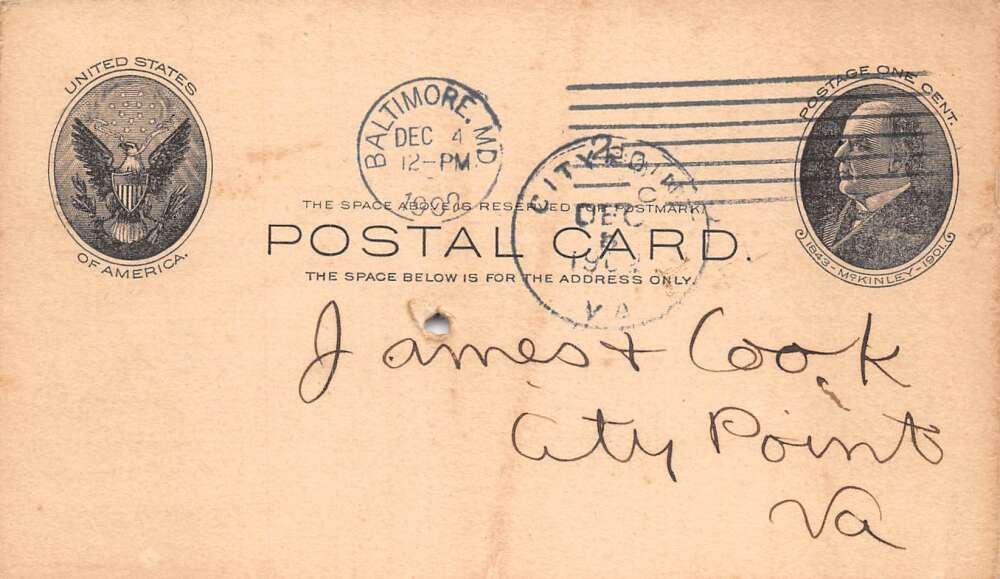 UNITED STATES
OF AMERICA.
BALTIMORE, MD
DEC 4
12-PM
CITY POINT
DEC
5
VA
POSTAGE ONE CENT.
1843-McKINLEY-1901.
THE SPACE ABOVE IS RESERVED FOR POSTMARK.
POSTAL CARD.
THE SPACE BELOW IS FOR THE ADDRESS ONLY.
James + Cook
City Point
Va